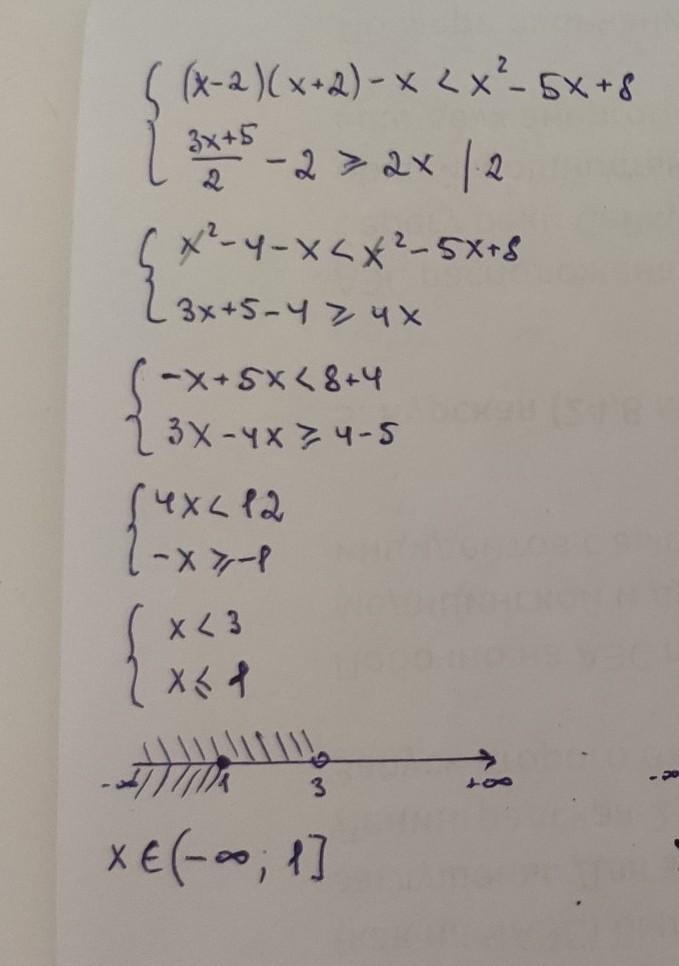 { (x-2)(x+2) - x < x² - 5x + 8
{ (3x+5)/2 - 2 ⩾ 2x |·2
{ x² - 4 - x < x² - 5x + 8
{ 3x + 5 - 4 ⩾ 4x
{ -x + 5x < 8 + 4
{ 3x - 4x ⩾ 4 - 5
{ 4x < 12
{ -x ⩾ -1
{ x < 3
{ x ⩽ 1
-∞ 1 3 +∞
-∞
x ∈ (-∞; 1]